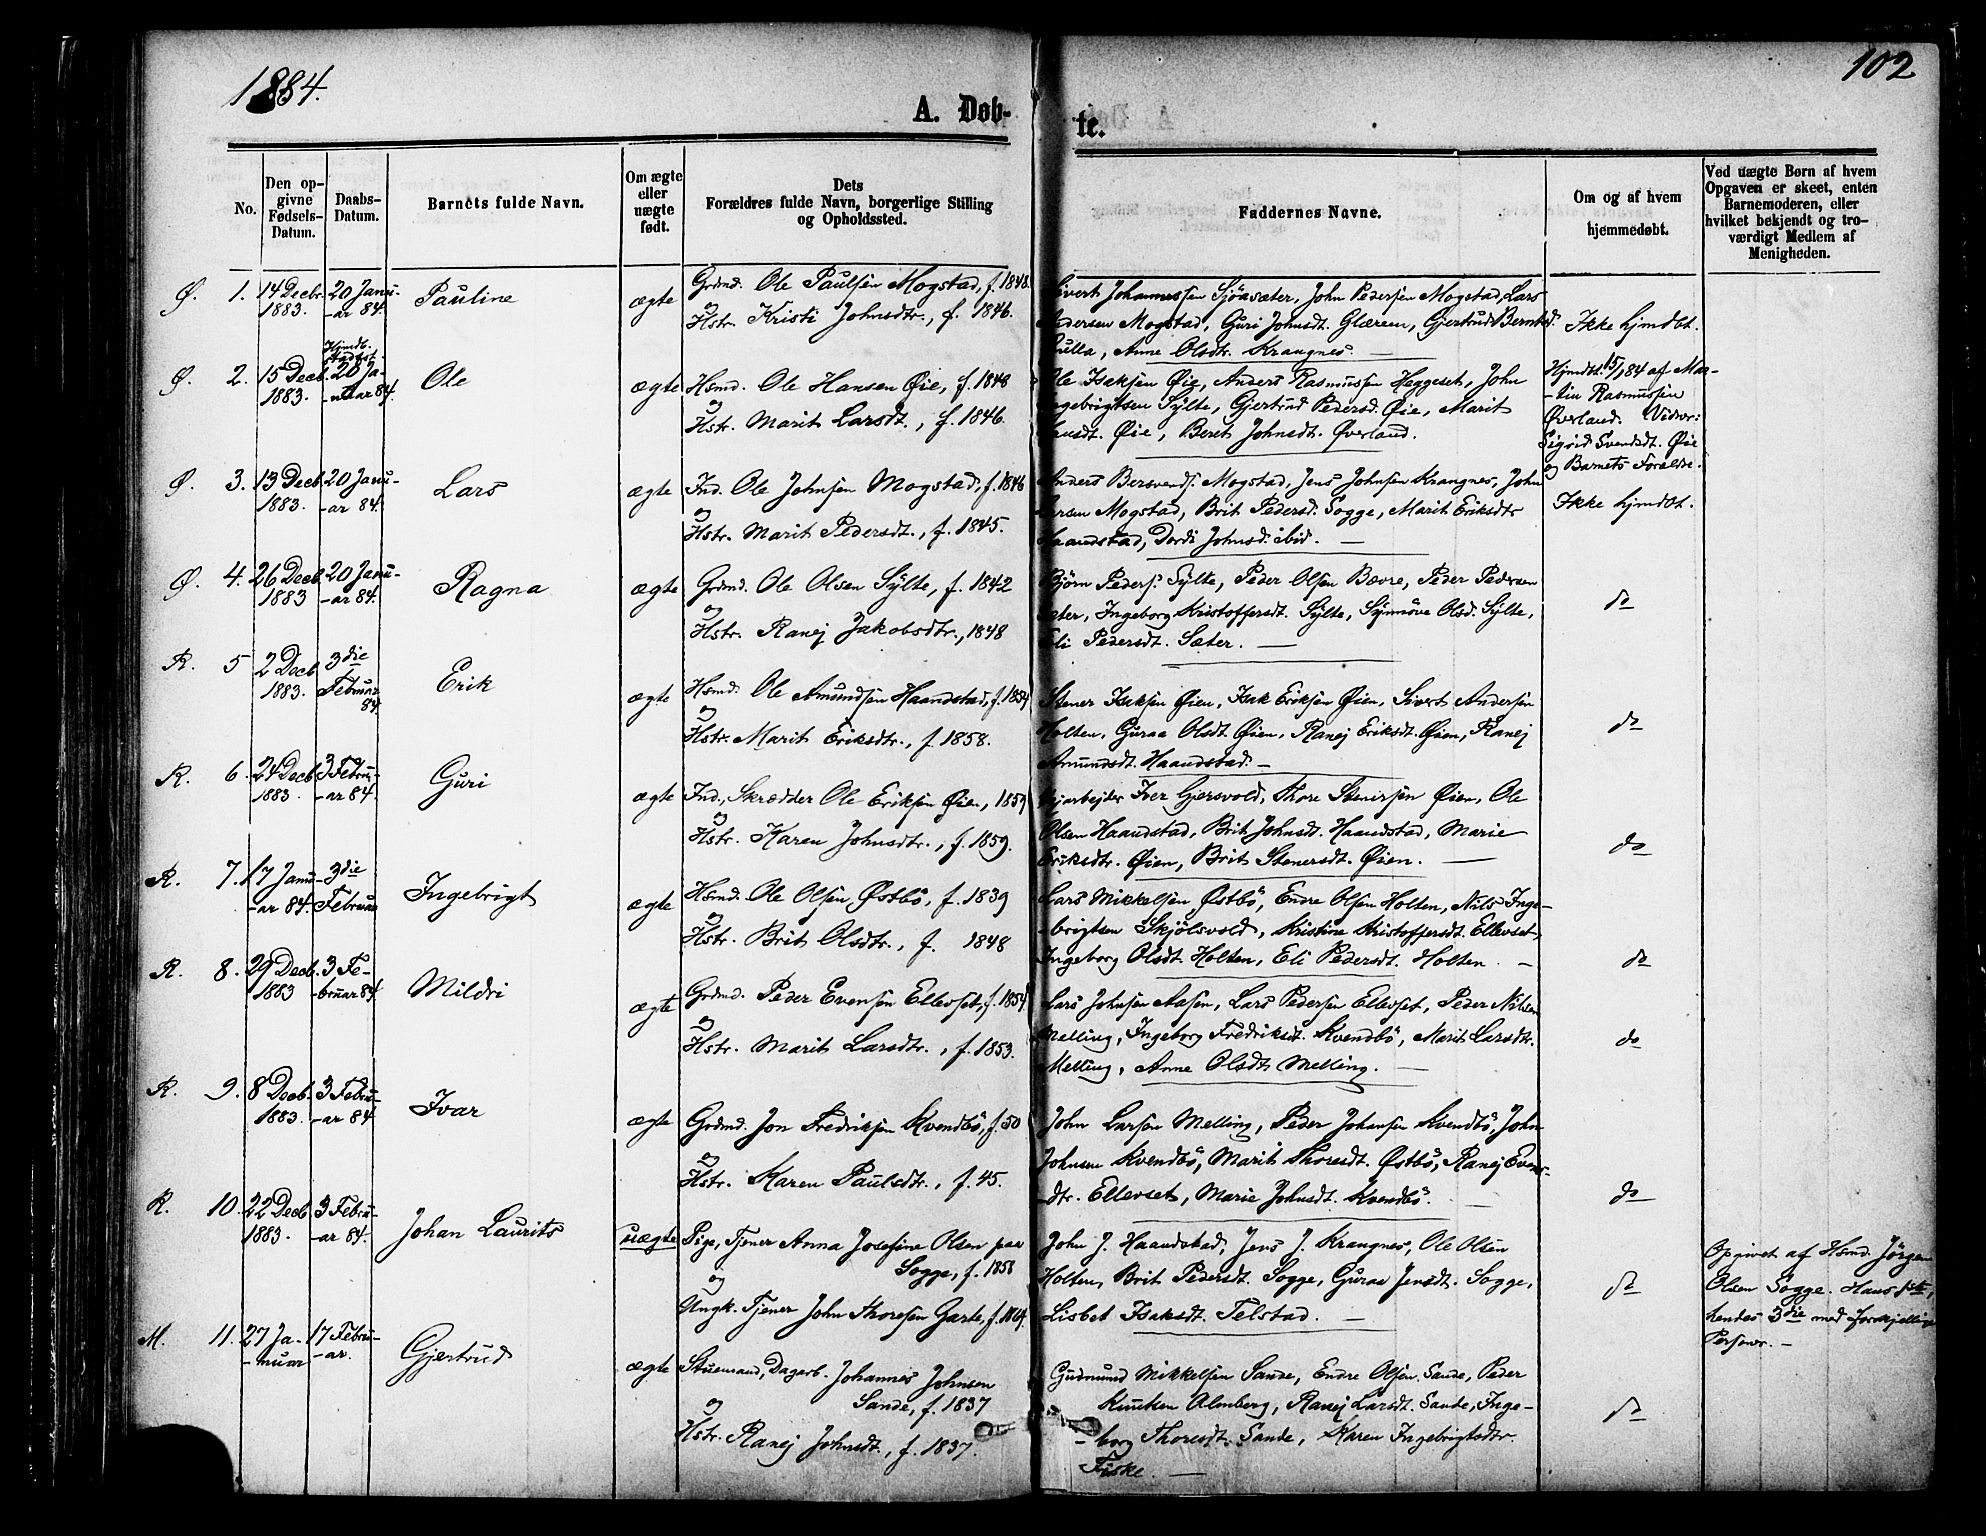 1884.
102
A. Døb-
te.
No.
Den op-
givne
Fødsels-
Datum.
Daabs-
Datum.
Barnets fulde Navn.
Om ægte
eller
uægte
født.
Dets
Forældres fulde Navn, borgerlige Stilling
og Opholdssted.
Faddernes Navne.
Om og af hvem
hjemmedøbt.
Ved uægte Børn af hvem
Opgaven er skeet, enten
Barnemoderen, eller
hvilket bekjendt og tro-
værdigt Medlem af
Menigheden.
Ø. 1. 14 Decbr. 20 Janu-
1883. -ar 84.
Pauline
ægte
Grdmd. Ole Paulsen Mogstad, f. 1848.
og
Hstr. Kristi Johnsdtr., f. 1846.
Sivert Johannessen Sjöasæter, John Pedersen Mogstad, Lars
Andersen Mogstad, Guri Johnsdt. Glærem, Gjertrud Berntsd.
Gulla, Anne Olsdtr. Krangnes. —
Ikke hjmdbt.
Ø. 2. 15 Decb. Hjmdb. stadfst. 20 Ja-
1883. -nuar 84.
Ole
ægte
Hsmd. Ole Hansen Øie, f. 1848
og
Hstr. Marit Larsdt., f. 1846.
Ole Isaksen Øie, Anders Rasmussen Heggeset, John
Ingebrigtsen Sylte, Gjertrud Pedersd. Øie, Marit
Hansdt. Øie, Beret Johnsdt. Øverland.
Hjmdbt. 15/1 84 af Mar-
-tin Rasmussen
Øverland. Vidner:
Sigrid Svendsdt. Øie
og Barnets Forældre.
Ø. 3. 13 Decb. 20 Janu-
1883. -ar 84.
Lars
ægte
Ind. Ole Johnsen Mogstad, f. 1846
og
Hstr. Marit Pedersdt., f. 1845.
Anders Bersvends. Mogstad, Jens Johnsen Krangnes, John
Larsen Mogstad, Brit Pedersd. Sogge, Marit Eriksdtr
Haandstad, Dordi Johnsd. ibid. —
Ikke hjmdbt.
Ø. 4. 26 Decb. 20 Janu-
1883 -ar 84.
Ragna
ægte
Grdmd. Ole Olsen Sylte, f. 1842
og
Hstr. Ranej Jakobsdtr., 1848
Bjørn Peders. Sylte, Peder Olsen Bævre, Peder Pedersen
Sæter, Ingeborg Kristoffersdt. Sylte, Synnöve Olsd. Sylte,
Eli Pedersdt. Sæter. —
do
R. 5 2 Decb 3die
1883. Februar
84
Erik
ægte
Hsmd. Ole Amundsen Haandstad, f. 1854
og
Hstr. Marit Eriksdtr., f. 1858.
Stener Isaksen Øien, Isak Eriksen Øien, Sivert Andersen
Holten, Guraa Olsdt. Øien, Ranej Eriksdt. Øien, Ranej
Amundsdt. Haandstad. —
do
R. 6. 24 Decb 3 Febru-
1883. -ar 84.
Guri
ægte
Ind., Skrædder Ole Eriksen Øien, 1859
og
Hstr. Karen Johnsdtr., f. 1859.
Vejarbejder Iver Gjersvold, Thore Stenersen Øien, Ole
Olsen Haandstad, Brit Johnsdt. Haandstad, Marie
Eriksdtr. Øien, Brit Stenersdt. Øien. —
do
R. 7. 17 Janu- 3die
-ar 84. Februar
Ingebrigt
ægte
Hsmd. Ole Olsen Østbö, f. 1839
og
Hstr. Brit Olsdtr., f. 1848
Lars Mikkelsen Østbö, Endre Olsen Holten, Nils Inge-
-brigtsen Skjölsvold, Kristine Kristoffersdt. Ellevset,
Ingeborg Olsdt. Holten, Eli Pedersdt. Holten. —
do
R. 8. 29 Decb. 3 Fe-
1883 -bruar 84.
Mildri
ægte
Grdmd. Peder Evensen Ellevset, f. 1854
og
Hstr. Marit Larsdtr., f. 1853.
Lars Johnsen Aasen, Lars Pedersen Ellevset, Peder Nilsen
Melling, Ingeborg Fredriksdt. Kvendbö, Marit Larsdtr.
Melling, Anne Olsdt. Melling. —
do
R. 9. 8 Decb. 3 Febru-
1883. -ar 84
Ivar
ægte
Grdmd. Jon Fredriksen Kvendbö, f. 50
og
Hstr. Karen Paulsdtr., f. 45.
John Larsen Melling, Peder Johansen Kvendbö, John
Johnsen Kvendbö, Marit Thoresdt. Østbö, Ranej Evens-
-dtr. Ellevset, Marie Johnsdt. Kvendbö. —
do
R. 10. 22 Decb 3 Febru-
1883. -ar 84.
Johan Laurits
uægte
Pige, Tjener Anna Josefine Olsen paa
Sogge, f. 1858
og
Ungk. Tjener John Thoresen Garte, f. 1864.
John J. Haandstad, Jens J. Krangnes, Ole Olsen
Holten, Brit Pedersdt. Sogge, Guraa Jensdt. Sogge,
Lisbet Isaksdt. Telstad. —
do
Opgivet af Hsmd. Jörgen
Olsen Sogge. Hans 1ste,
hendes 3die med forskjellige
Personer. —
M. 11. 27 Ja- 17 Febru-
-nuar -ar.
Gjertrud
ægte
Stuemand, Dagarb. Johannes Johnsen
Sande, f. 1837
og
Hstr. Ranej Johnsdt., f. 1837.
Gudmund Mikkelsen Sande, Endre Olsen Sande, Peder
Knutsen Almberg, Ranej Larsdt. Sande, Inge-
-borg Thoresdt. Sande, Karen Ingebrigtsdtr.
Fiske. —
do